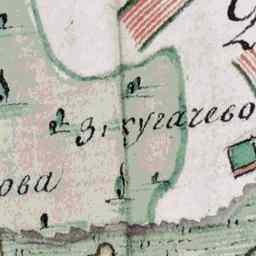 з. кугачево
ова